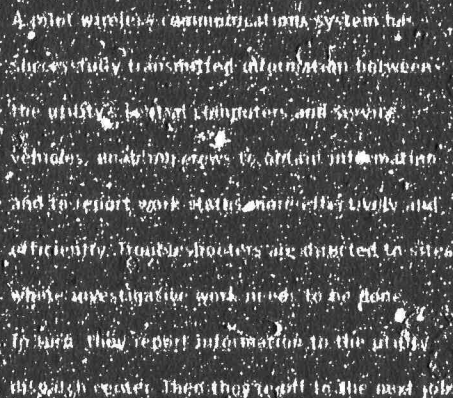 A pilot wireless communications system has
successfully transmitted information between
the utility's central computers and service
vehicles, enabling crews to obtain information
and to report work status more effectively and
efficiently. Troubleshooters are directed to sites
where investigative work needs to be done.
In turn, they report information to the utility
dispatch center. Then they're off to the next job.